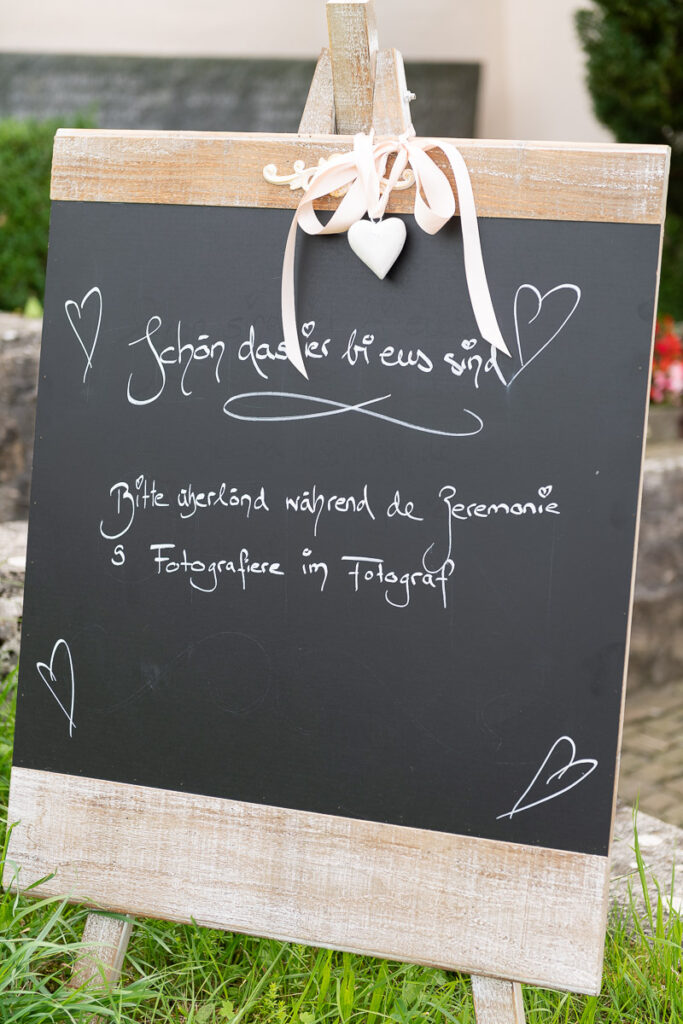 Schön das ier bi eus sind
Bitte überlönd während de Zeremonie
s Fotografiere im Fotograf